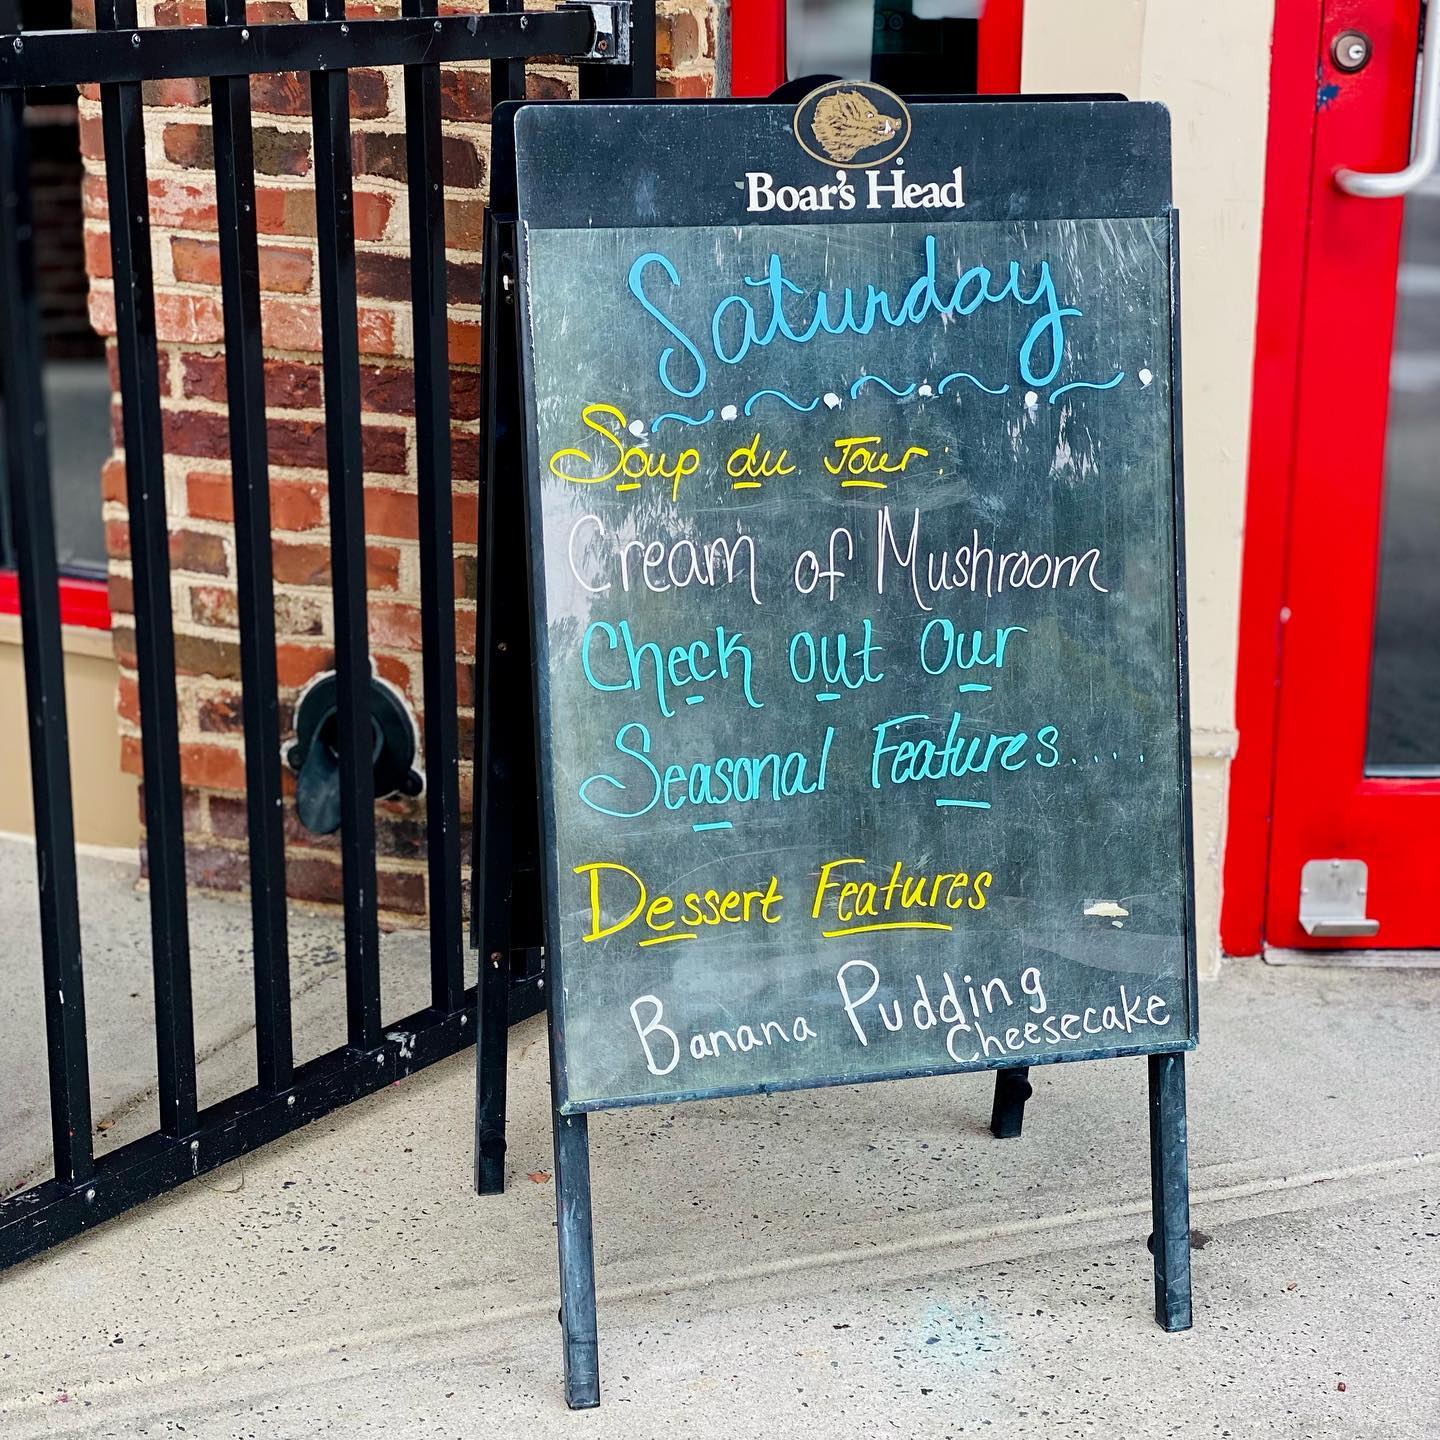 Boar's Head
Saturday
Soup du Jour:
Cream of Mushroom
Check out Our
Seasonal Features....
Dessert Features
Banana Pudding
Cheesecake